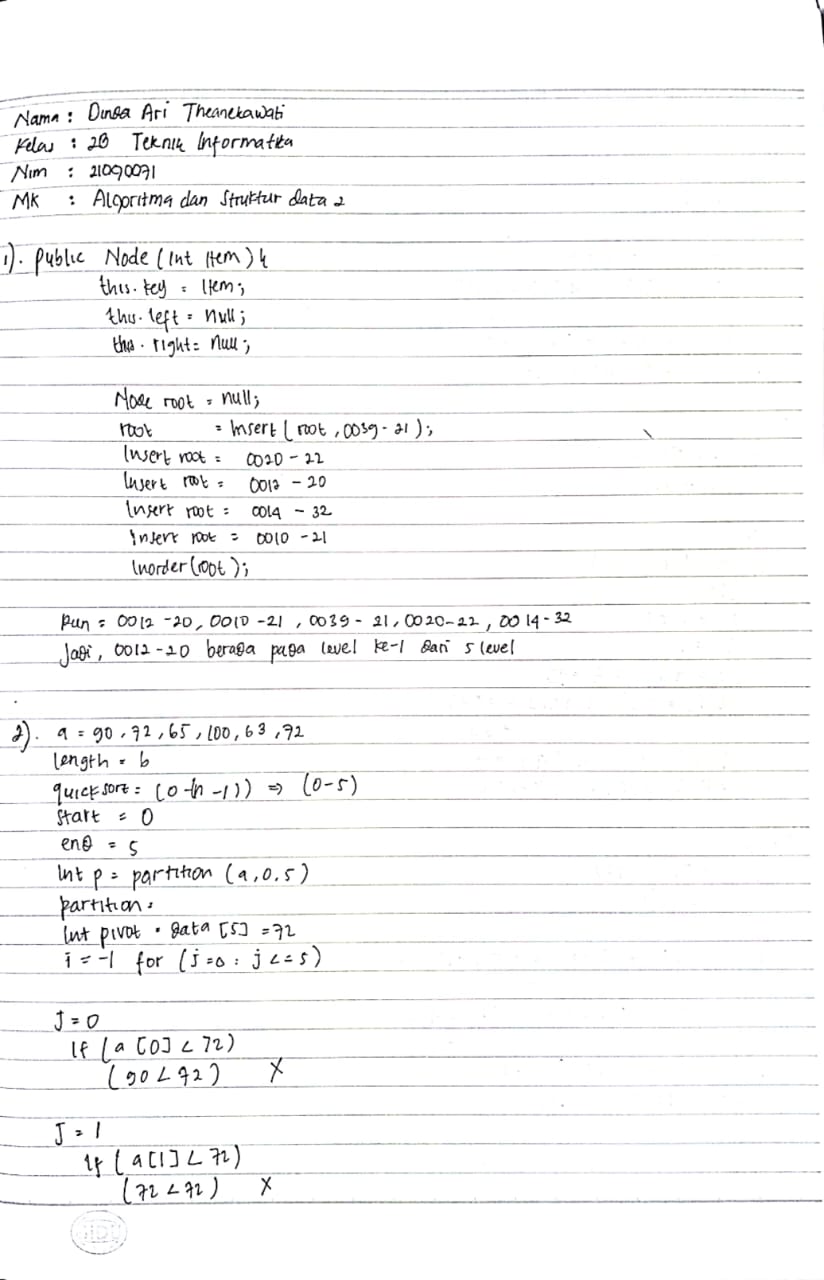 Nama : Dinda Ari Theanekawati
Kelas : 2B Teknik Informatika
Nim : 21090071
MK : Algoritma dan Struktur data 2
1). Public Node (Int Item) {
this.key = Item;
this.left = null;
this.right = null;
Node root = null;
root = Insert (root, 0039-21);
Insert root = 0020 - 22
Insert root = 0012 - 20
Insert root = 0014 - 32
Insert root = 0010 - 21
Inorder (root);
Run = 0012 -20, 0010 -21, 0039 - 21, 0020-22, 0014-32
Jadi, 0012-20 berada pada level ke-1 dari 5 level
2). a = 90, 72, 65, 100, 63, 72
length = 6
quick sort = (0-(n -1)) ⇒ (0-5)
Start = 0
end = 5
Int p = partition (a,0,5)
partition =
Int pivot = data [5] = 72
i = -1 for (j =0 ; j <= 5)
J = 0
If (a [0] < 72)
(90 < 72) X
J = 1
If (a [1] < 72)
(72 < 72) X